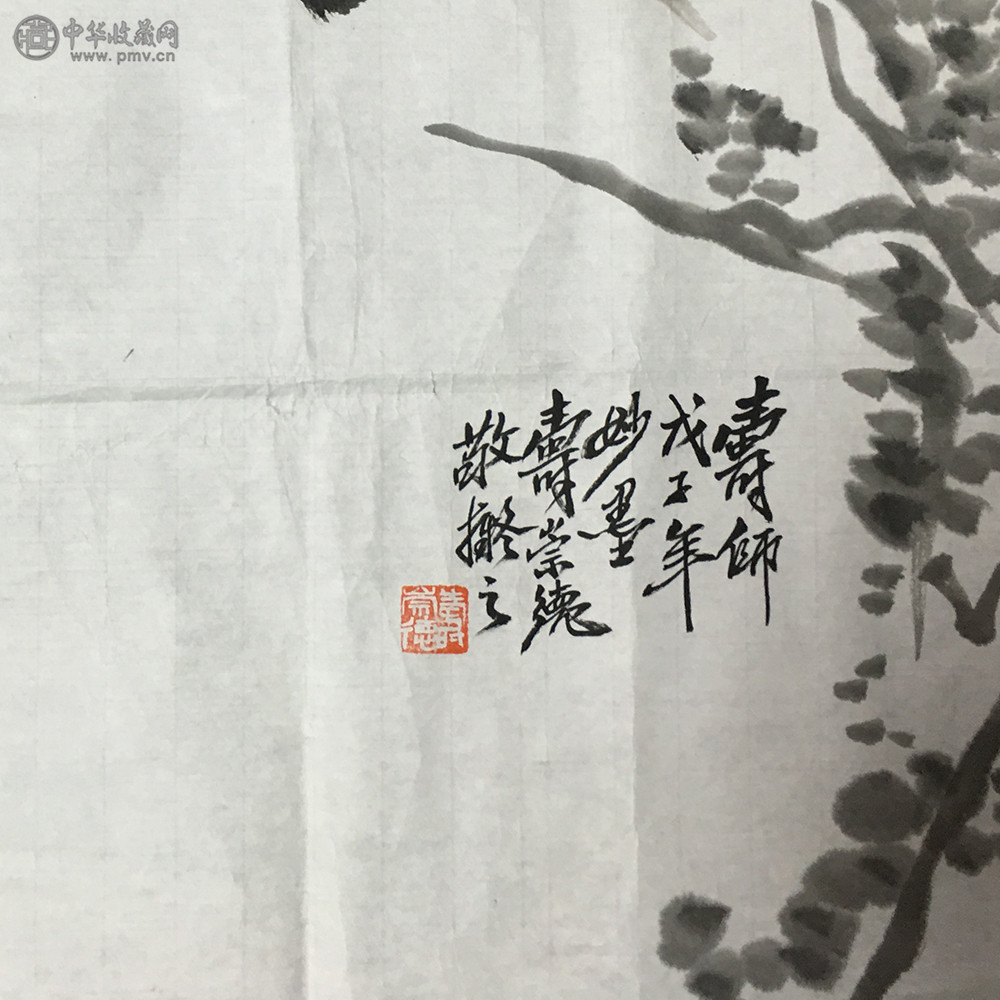 中华收藏网
www.pmv.cn
壽師
戊子年
妙墨
壽崇德
敬擬之
壽崇德